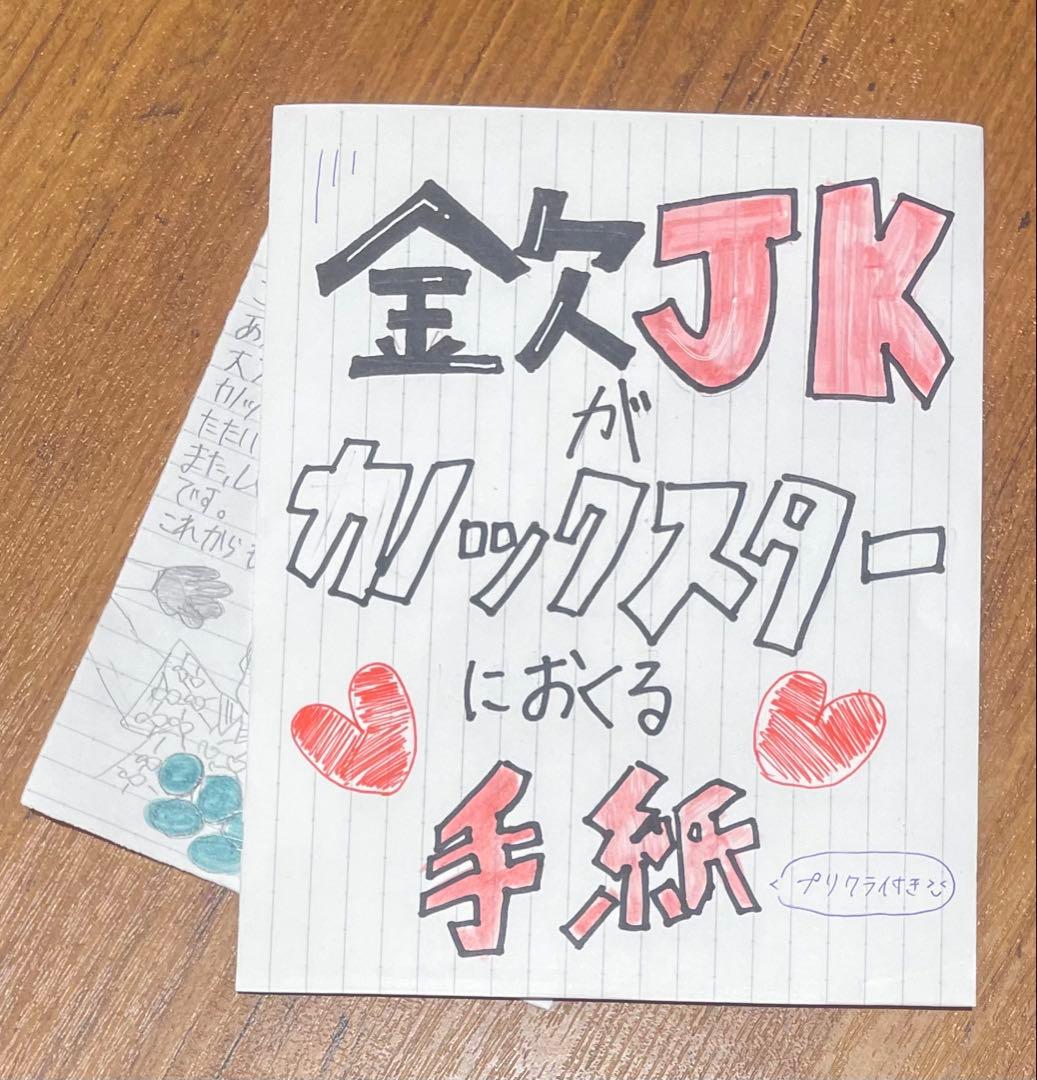 金欠JK
が
カノックスター
におくる
手紙
プリクラ付き
あ
大
カノッ
また,し
です。
これからも